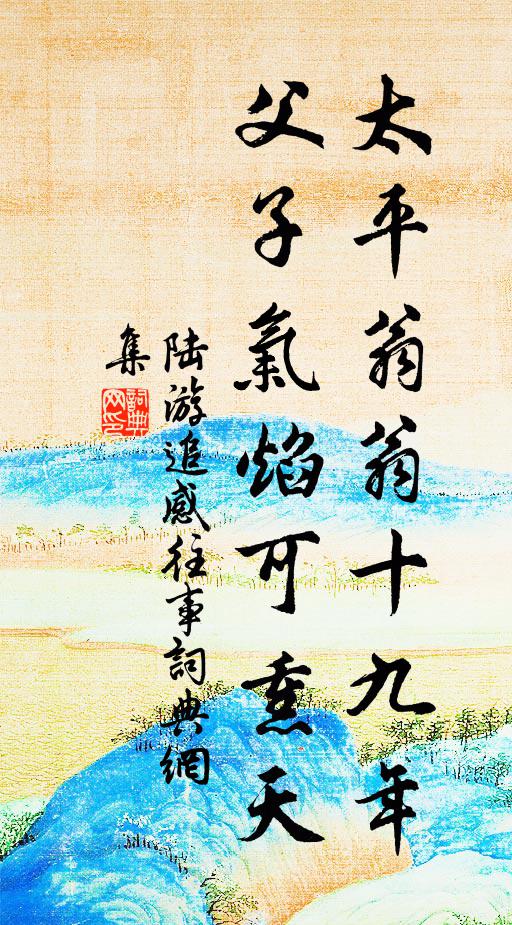 太平翁翁十九年
父子氣焰可熏天
陆游追感往事詞典網
集
詞典
网印